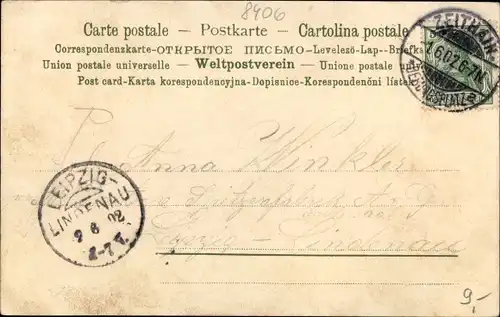 8406
Carte postale — Postkarte — Cartolina postale
Correspondenzkarte-ОТКРЫТОЕ ПИСЬМО-Levelező-Lap--Briefka
Union postale universelle — Weltpostverein — Unione postale univ
Post card-Karta korespondencyjna-Dopisnice-Korespondenční lístek
ZEITHAIN
1.6.02.6-7N.
Anna Winkler
LEIPZIG-
LINDENAU
2 6 02
Leipzig-Lindenau
9,-